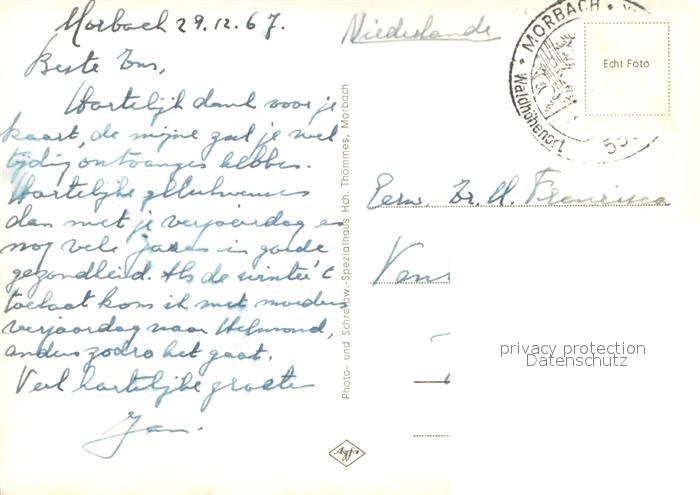 Morbach 29.12.67.
Beste Zus,
Hartelijk dank voor je
kaart, de mijne zal je wel
tijdig ontvangen hebben.
Hartelijke gelukwensen
dan met je verjaardag en
nog vele jaren in goede
gezondheid. Als de winter 't
toelaat kom ik met moeders
verjaardag naar Helmond,
anders zodra het gaat.
Veel hartelijke groeten
Jan.
Photo- und Schreibw.-Spezialhaus Hch. Thömmes, Morbach
Agfa
Niederlande
MORBACH
Waldhöhenort
55
Echt Foto
Eerw. Zr. M. Francisca
privacy protection
Datenschutz